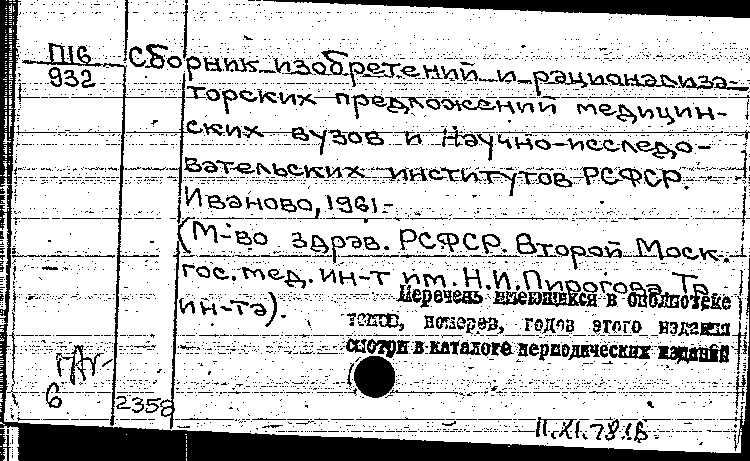 П16
932
Сборник изобретений и рационализа-
торских предложений медицин-
ских вузов и Научно-исследо-
вательских институтов РСФСР.
Иваново, 1961-
(М-во здрав. РСФСР. Второй Моск.
гос. мед. ин-т им. Н.И. Пирогова. Тр.
ин-та).
Перечень имеющихся в библиотеке
томов, номеров, годов этого издания
смотри в каталоге периодических изданий
6
2358
11.XI.78